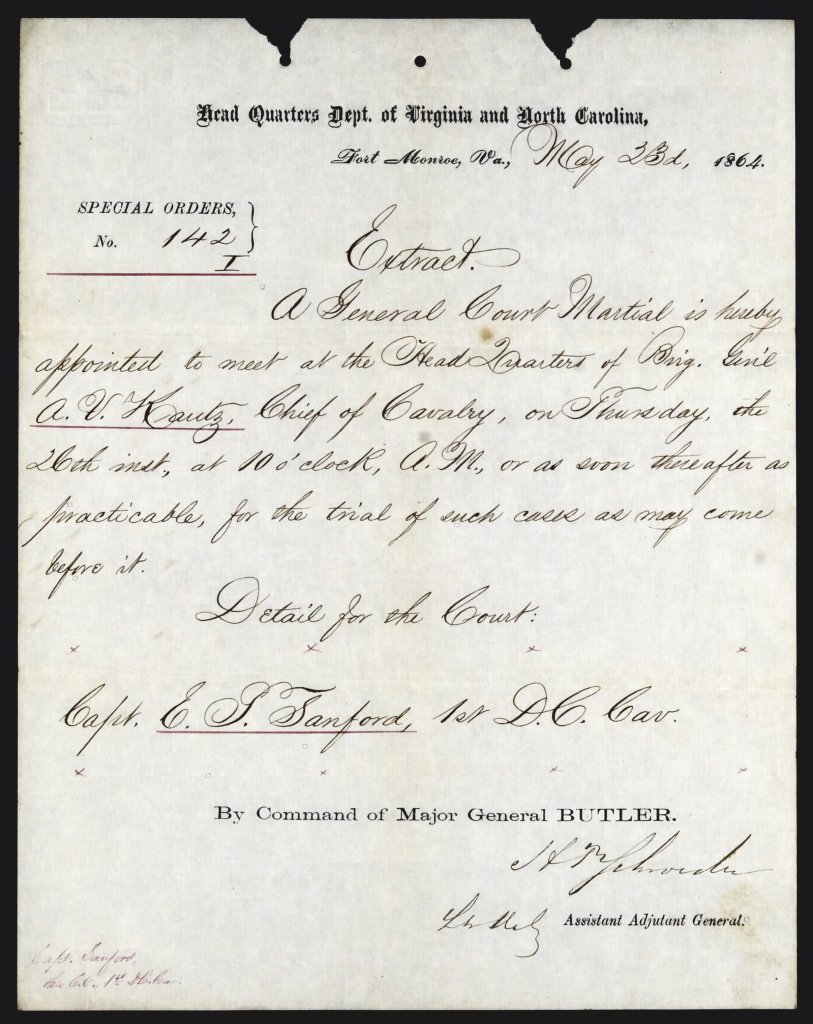 Head Quarters Dept. of Virginia and North Carolina,
Fort Monroe, Va., May 23d, 1864.
SPECIAL ORDERS,
No. 142
I
Extract.
A General Court Martial is hereby
appointed to meet at the Head Quarters of Brig. Gen'l
A. V. Kautz, Chief of Cavalry, on Thursday, the
26th inst., at 10 o'clock, A.M., or as soon thereafter as
practicable, for the trial of such cases as may come
before it.
Detail for the Court:
x x x x
Capt. E. P. Sanford, 1st D.C. Cav.
x x x x
By Command of Major General BUTLER.
Schroeder
Assistant Adjutant General.
Capt. Sanford,
thro C.C., 1st D.C. Cav.